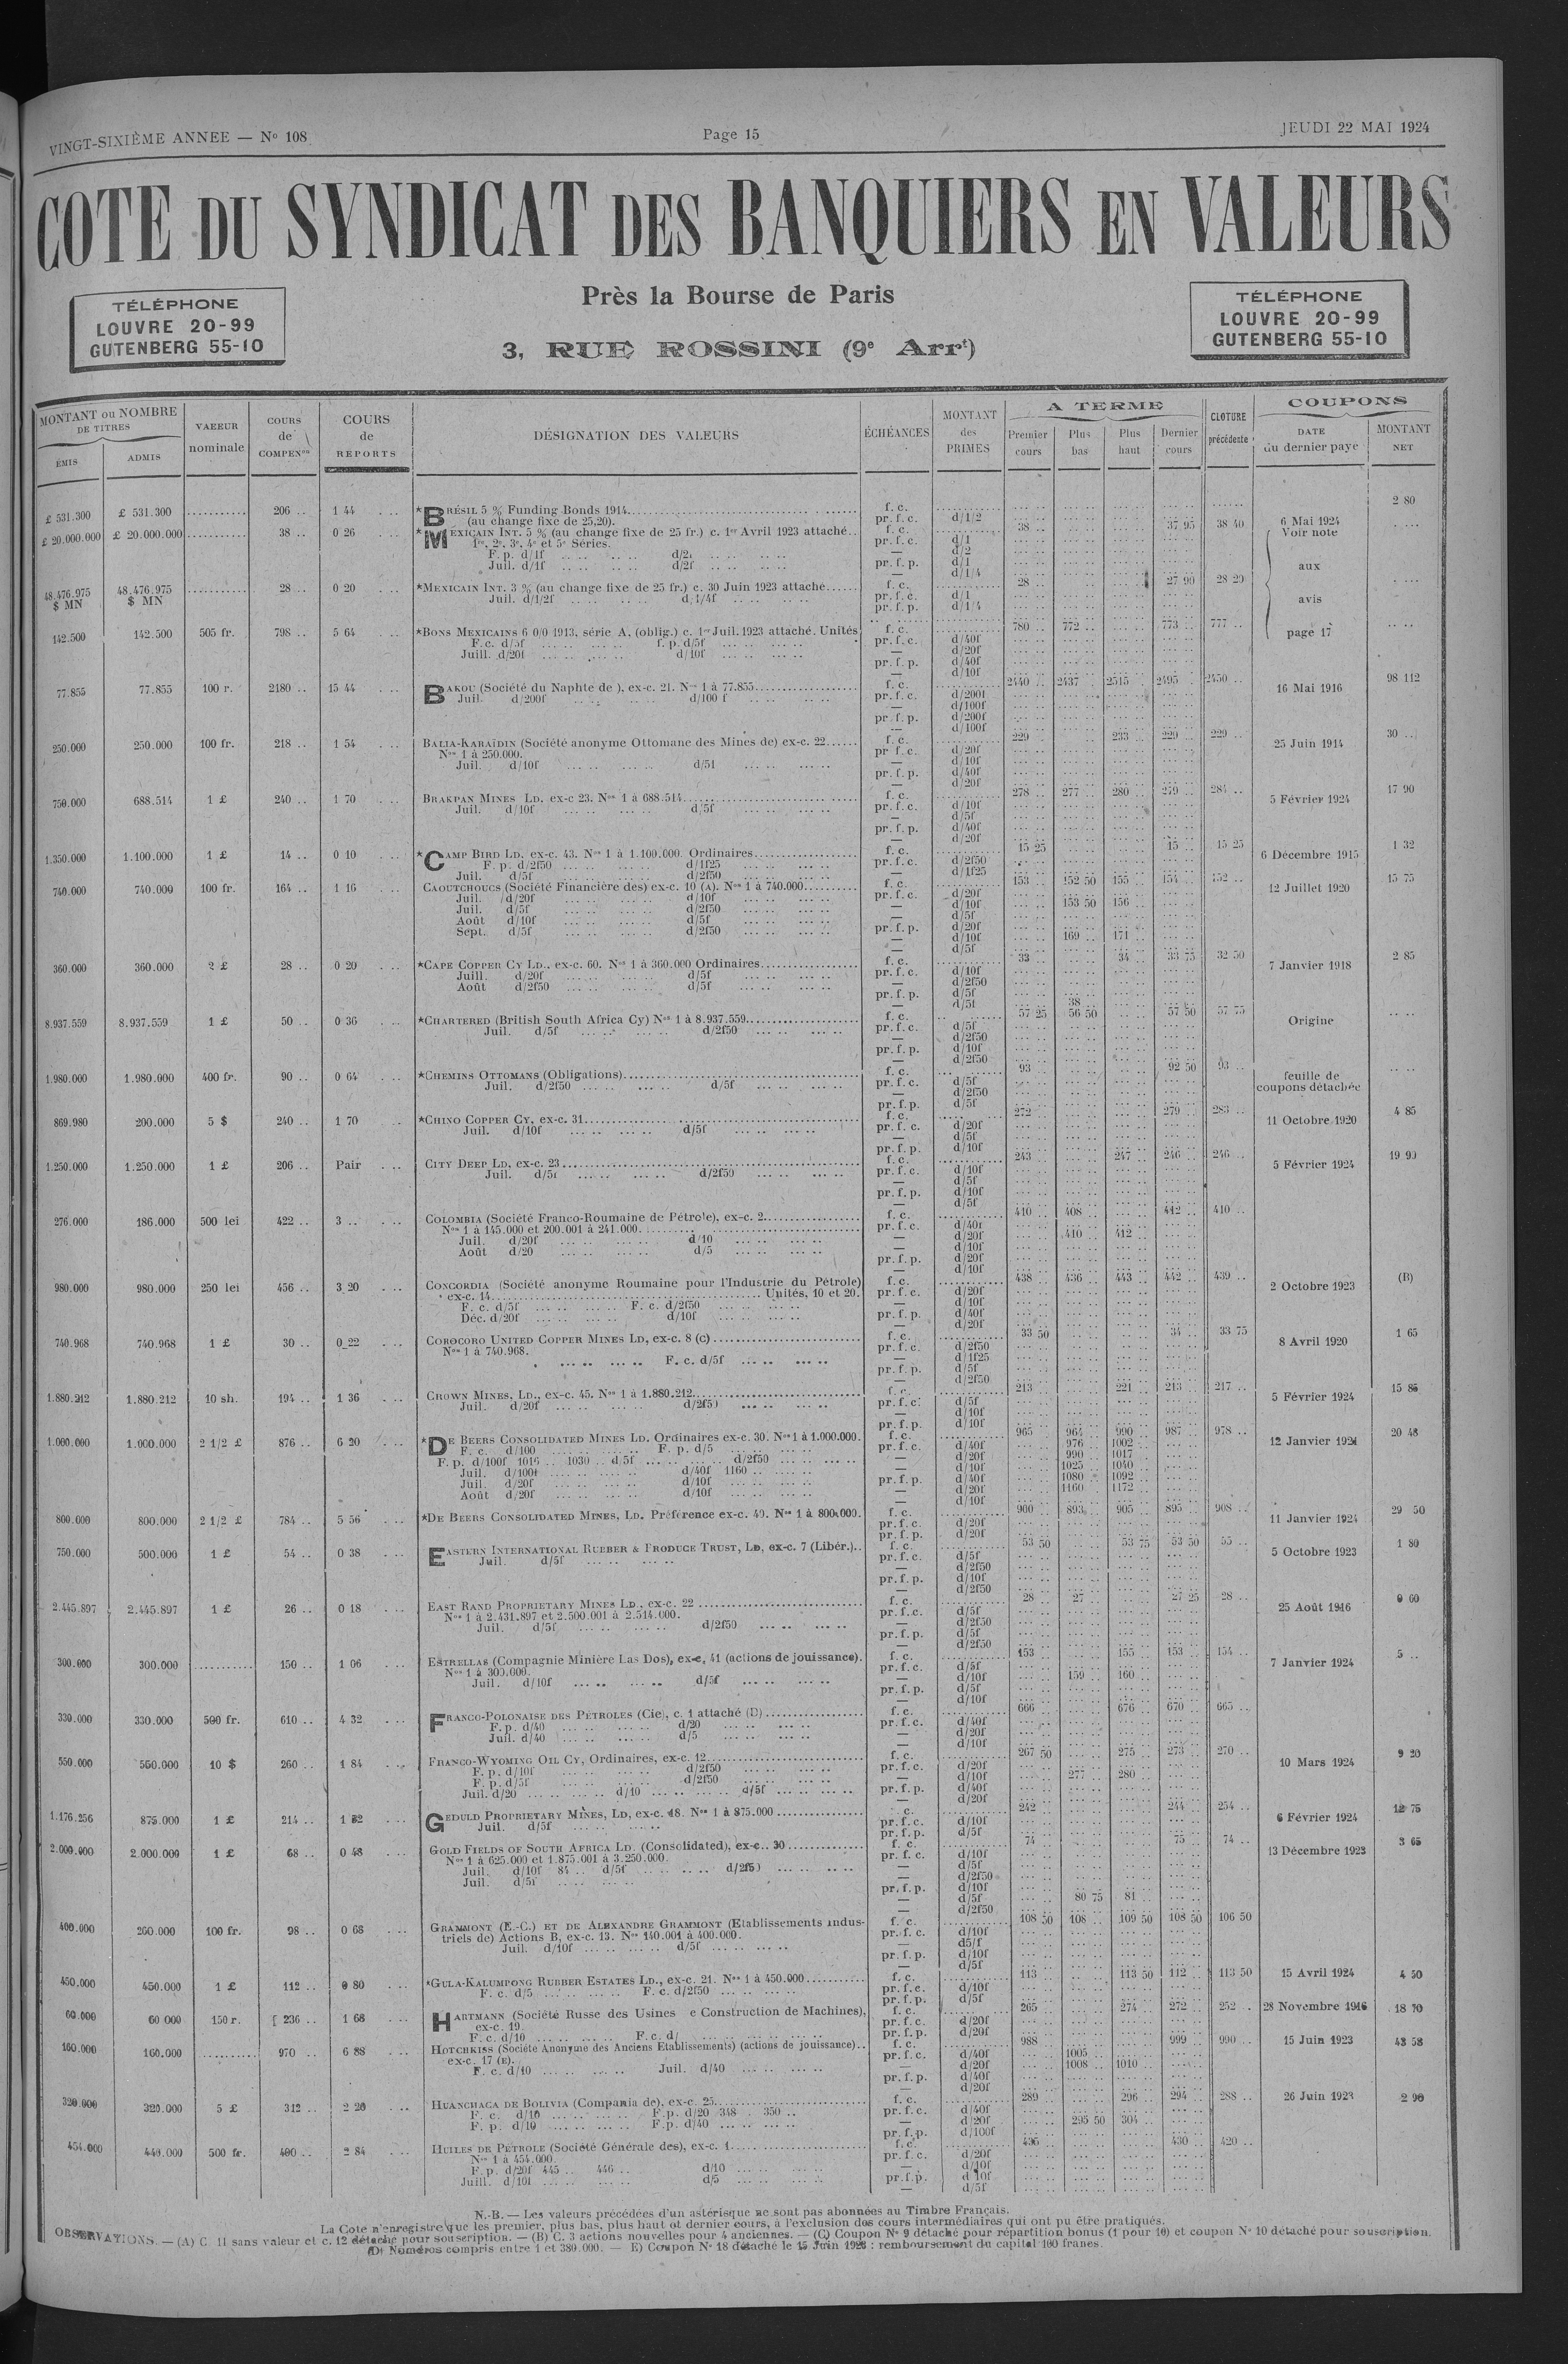 VINGT-SIXIÈME ANNEE — No 108
Page 15
JEUDI 22 MAI 1924
COTE DU SYNDICAT DES BANQUIERS EN VALEURS
Près la Bourse de Paris
3, RUE ROSSINI (9e Arrt)
TÉLÉPHONE
LOUVRE 20-99
GUTENBERG 55-10
TÉLÉPHONE
LOUVRE 20-99
GUTENBERG 55-10
MONTANT ou NOMBRE DE TITRES
ÉMIS
ADMIS
VAEEUR nominale
COURS de COMPENon
COURS de REPORTS
DÉSIGNATION DES VALEURS
ÉCHÉANCES
MONTANT des PRIMES
A TERME
Premier cours
Plus bas
Plus haut
Dernier cours
CLOTURE précédente
COUPONS
DATE du dernier paye
MONTANT NET
£ 531.300 £ 531.300 .......... 206 .. 1 44 *BRÉSIL 5 % Funding Bonds 1914 f. c. 6 Mai 1924 2 80
(au change fixe de 25,20). pr. f. c. d/1/2
£ 20.000.000 £ 20.000.000 .......... 38 .. 0 26 *MEXICAIN INT. 5 % (au change fixe de 25 fr.) c. 1er Avril 1923 attaché.. f. c. 38 .. 37 95 38 40 Voir note
1re, 2e, 3e, 4e et 5e Séries. pr. f. c. d/1
F. p. d/1f d/2f — d/2
Juil. d/1f d/2f pr. f. p. d/1
— d/1/4
48.476.975 $ MN 48.476.975 $ MN .......... 28 .. 0 20 *MEXICAIN INT. 3 % (au change fixe de 25 fr.) c. 30 Juin 1923 attaché f. c. 28 .. 27 90 28 20 aux
Juil. d/1/2f d/1/4f pr. f. c. d/1
pr. f. p. d/1/4 avis
142.500 142.500 505 fr. 798 .. 5 64 *BONS MEXICAINS 6 0/0 1913, série A, (oblig.) c. 1er Juil. 1923 attaché. Unités f. c. 780 .. 772 .. 773 .. 777 .. page 17
F.c. d/5f f. p. d/5f pr. f. c. d/40f
Juill. d/20f d/10f — d/20f
pr. f. p. d/40f
— d/10f
77.855 77.855 100 r. 2180 .. 15 44 BAKOU (Société du Naphte de ), ex-c. 21. Nos 1 à 77.855 f. c. 2440 .. 2437 .. 2515 .. 2495 .. 2450 .. 16 Mai 1916 98 112
Juil. d/200f d/100 f pr. f. c. d/200f
— d/100f
pr. f. p. d/200f
— d/100f
250.000 250.000 100 fr. 218 .. 1 54 BALIA-KARAÏDIN (Société anonyme Ottomane des Mines de) ex-c. 22 f. c. 229 .. 233 .. 229 .. 229 .. 25 Juin 1914 30 ..
Nos 1 à 250.000. pr f. c. d/20f
Juil. d/10f d/5f — d/10f
pr. f. p. d/40f
— d/20f
750.000 688.514 1 £ 240 .. 1 70 BRAKPAN MINES LD, ex-c 23. Nos 1 à 688.514 f. c. 278 .. 277 .. 280 .. 279 .. 284 .. 5 Février 1924 17 90
Juil. d/10f d/5f pr. f. c. d/10f
— d/5f
pr. f. p. d/40f
— d/20f
1.350.000 1.100.000 1 £ 14 .. 0 10 *CAMP BIRD LD. ex-c. 43. Nos 1 à 1.100.000. Ordinaires f. c. 15 25 15 .. 15 25 6 Décembre 1915 1 32
F. p. d/2f50 d/1f25 pr. f. c. d/2f50
Juil. d/5f d/2f50 — d/1f25
740.000 740.000 100 fr. 164 .. 1 16 CAOUTCHOUCS (Société Financière des) ex-c. 10 (A). Nos 1 à 740.000 f. c. 153 .. 152 50 155 .. 154 .. 152 .. 12 Juillet 1920 15 75
Juil. d/20f d/10f pr. f. c. d/20f
Juil. d/5f d/2f50 — d/10f 153 50 156 ..
Août d/10f d/5f — d/5f
Sept. d/5f d/2f50 pr. f. p. d/20f
— d/10f 169 .. 171 ..
— d/5f
360.000 360.000 2 £ 28 .. 0 20 *CAPE COPPER CY LD., ex-c. 60. Nos 1 à 360.000 Ordinaires f. c. 33 .. 34 .. 33 75 32 50 7 Janvier 1918 2 85
Juill. d/20f d/5f pr. f. c. d/10f
Août d/2f50 d/5f — d/2f50
pr. f. p. d/5f
— d/5f 38 ..
8.937.559 8.937.559 1 £ 50 .. 0 36 *CHARTERED (British South Africa Cy) Nos 1 à 8.937.559 f. c. 57 25 56 50 57 50 57 75 Origine
Juil. d/5f d/2f50 pr. f. c. d/5f
— d/2f50
pr. f. p. d/10f
— d/2f50
1.980.000 1.980.000 400 fr. 90 .. 0 64 *CHEMINS OTTOMANS (Obligations) f. c. 93 .. 92 50 93 .. feuille de coupons détachée
Juil. d/2f50 d/5f pr. f. c. d/5f
— d/2f50
pr. f. p. d/5f
869.980 200.000 5 $ 240 .. 1 70 *CHINO COPPER CY, ex-c. 31 f. c. 272 .. 279 .. 283 .. 11 Octobre 1920 4 85
Juil. d/10f d/5f pr. f. c. d/20f
— d/5f
pr. f. p. d/10f
1.250.000 1.250.000 1 £ 206 .. Pair CITY DEEP LD, ex-c. 23 f. c. 243 .. 247 .. 246 .. 246 .. 5 Février 1924 19 90
Juil. d/5f d/2f50 pr. f. c. d/10f
— d/5f
pr. f. p. d/10f
— d/5f
276.000 186.000 500 lei 422 .. 3 .. COLOMBIA (Société Franco-Roumaine de Pétrole), ex-c. 2 f. c. 410 .. 408 .. 412 .. 410 ..
Nos 1 à 145.000 et 200.001 à 241.000. pr. f. c. d/40f
Juil. d/20f d/10 — d/20f 410 .. 412 ..
Août d/20 d/5 — d/10f
pr. f. p. d/20f
— d/10f
980.000 980.000 250 lei 456 .. 3 20 CONCORDIA (Société anonyme Roumaine pour l'Industrie du Pétrole) f. c. 438 .. 436 .. 443 .. 442 .. 439 .. 2 Octobre 1923 (B)
ex-c. 14 Unités, 10 et 20. pr. f. c. d/20f
F. c. d/5f F. c. d/2f50 — d/10f
Déc. d/20f d/10f pr. f. p. d/40f
— d/20f
740.968 740.968 1 £ 30 .. 0 22 COROCORO UNITED COPPER MINES LD, ex-c. 8 (c) f. c. 33 50 34 .. 33 75 8 Avril 1920 1 65
Nos 1 à 740.968. pr. f. c. d/2f50
F. c. d/5f — d/1f25
pr. f. p. d/5f
— d/2f50
1.880.212 1.880.212 10 sh. 194 .. 1 36 CROWN MINES, LD., ex-c. 45. Nos 1 à 1.880.212 f. c. 213 .. 221 .. 213 .. 217 .. 5 Février 1924 15 86
Juil. d/20f d/2f50 pr. f. c. d/5f
— d/10f
pr. f. p. d/10f
1.000.000 1.000.000 2 1/2 £ 876 .. 6 20 *DE BEERS CONSOLIDATED MINES LD. Ordinaires ex-c. 30. Nos 1 à 1.000.000. f. c. 965 .. 964 .. 990 .. 987 .. 978 .. 12 Janvier 1921 20 48
F. c. d/100 F. p. d/5 pr. f. c. d/40f 976 .. 1002 ..
F. p. d/100f 1016 .. 1030 .. d/5f d/2f50 — d/20f 990 .. 1017 ..
Juil. d/100f d/40f 1160 .. — d/10f 1025 .. 1040 ..
Juil. d/20f d/10f pr. f. p. d/40f 1080 .. 1092 ..
Août d/20f d/10f — d/20f 1160 .. 1172 ..
— d/10f
800.000 800.000 2 1/2 £ 784 .. 5 56 *DE BEERS CONSOLIDATED MINES, LD. Préférence ex-c. 40. Nos 1 à 800.000. f. c. 900 .. 893 .. 905 .. 895 .. 908 .. 11 Janvier 1924 29 50
pr. f. c. d/20f
pr. f. p. d/20f
750.000 500.000 1 £ 54 .. 0 38 EASTERN INTERNATIONAL RUBBER & PRODUCE TRUST, LD, ex-c. 7 (Libér.).. f. c. 53 50 53 75 53 50 55 .. 5 Octobre 1923 1 80
Juil. d/5f pr. f. c. d/5f
— d/2f50
pr. f. p. d/10f
— d/2f50
2.445.897 2.445.897 1 £ 26 .. 0 18 EAST RAND PROPRIETARY MINES LD., ex-c. 22 f. c. 28 .. 27 .. 27 25 28 .. 25 Août 1916 0 60
Nos 1 à 2.431.897 et 2.500.001 à 2.514.000. pr. f. c. d/5f
Juil. d/5f d/2f50 — d/2f50
pr. f. p. d/5f
— d/2f50
300.000 300.000 .......... 150 .. 1 06 ESTRELLAS (Compagnie Minière Las Dos), ex-c. 41 (actions de jouissance). f. c. 153 .. 155 .. 153 .. 154 .. 7 Janvier 1924 5 ..
Nos 1 à 300.000. pr. f. c. d/5f
Juil. d/10f d/5f — d/10f 159 .. 160 ..
pr. f. p. d/5f
— d/10f
330.000 330.000 500 fr. 610 .. 4 32 FRANCO-POLONAISE DES PÉTROLES (Cie), c. 1 attaché (D) f. c. 666 .. 676 .. 670 .. 665 ..
F. p. d/40 d/20 pr. f. c. d/40f
Juil. d/40 d/5 — d/20f
— d/10f
550.000 550.000 10 $ 260 .. 1 84 FRANCO-WYOMING OIL CY, Ordinaires, ex-c. 12 f. c. 267 50 275 .. 273 .. 270 .. 10 Mars 1924 9 20
F. p. d/10f d/2f50 pr. f. c. d/20f
F. p. d/5f d/2f50 — d/10f 277 .. 280 ..
Juil. d/20 d/10 d/5f pr. f. p. d/40f
— d/20f
1.176.256 875.000 1 £ 214 .. 1 52 GEDULD PROPRIETARY MINES, LD, ex-c. 18. Nos 1 à 875.000 f. c. 242 .. 244 .. 254 .. 6 Février 1924 12 75
Juil. d/5f pr. f. c. d/10f
pr. f. p. d/5f
2.000.000 2.000.000 1 £ 68 .. 0 48 GOLD FIELDS OF SOUTH AFRICA LD. (Consolidated), ex-c. 30 f. c. 74 .. 75 .. 74 .. 13 Décembre 1923 3 65
Nos 1 à 625.000 et 1.875.001 à 3.250.000. pr. f. c. d/10f
Juil. d/10f 84 .. d/5f d/2f50 — d/5f
Juil. d/5f — d/2f50
pr. f. p. d/10f
— d/5f 80 75 81 ..
— d/2f50
400.000 260.000 100 fr. 98 .. 0 68 GRAMMONT (E.-C.) ET DE ALEXANDRE GRAMMONT (Etablissements indus- f. c. 108 50 108 .. 109 50 108 50 106 50
triels de) Actions B, ex-c. 13. Nos 140.001 à 400.000. pr. f. c. d/10f
Juil. d/10f d/5f — d5/f
pr. f. p. d/10f
— d/5f
450.000 450.000 1 £ 112 .. 0 80 *GULA-KALUMPONG RUBBER ESTATES LD., ex-c. 21. Nos 1 à 450.000 f. c. 113 .. 113 50 112 .. 113 50 15 Avril 1924 4 50
F. c. d/5 F. c. d/2f50 pr. f. c. d/10f
pr. f. p. d/5f
60.000 60 000 150 r. 236 .. 1 68 HARTMANN (Société Russe des Usines e Construction de Machines), f. c. 265 .. 274 .. 272 .. 252 .. 28 Novembre 1916 18 70
ex-c. 19. pr. f. c. d/20f
F. c. d/10 F. c. d/ pr. f. p. d/20f
160.000 160.000 .......... 970 .. 6 88 HOTCHKISS (Société Anonyme des Anciens Etablissements) (actions de jouissance).. f. c. 988 .. 999 .. 990 .. 15 Juin 1923 43 58
ex-c. 17 (E). pr. f. c. d/40f 1005 ..
F. c. d/10 Juil. d/40 — d/20f 1008 .. 1010 ..
pr. f. p. d/40f
— d/20f
320.000 320.000 5 £ 312 .. 2 20 HUANCHACA DE BOLIVIA (Compania de), ex-c. 25 f. c. 289 .. 296 .. 294 .. 288 .. 26 Juin 1923 2 90
F. c. d/10 F.p. d/20 348 350 .. pr. f. c. d/40f
F. p. d/10 F.p. d/40 — d/20f 295 50 304 ..
pr. f. p. d/100f
454.000 440.000 500 fr. 400 .. 2 84 HUILES DE PÉTROLE (Société Générale des), ex-c. 1 f. c. 436 .. 430 .. 420 ..
Nos 1 à 454.000. pr. f. c. d/20f
F. p. d/20f 445 .. 446 .. d/10 — d/10f
Juill. d/10f d/5 pr. f. p. d/10f
— d/5f
N.-B. — Les valeurs précédées d'un astérisque ne sont pas abonnées au Timbre Français.
La Cote n'enregistre que les premier, plus bas, plus haut et dernier cours, à l'exclusion des cours intermédiaires qui ont pu être pratiqués.
OBSERVATIONS. — (A) C. 11 sans valeur et c. 12 détaché pour souscription. — (B) C. 3 actions nouvelles pour 4 anciennes. — (C) Coupon No 9 détaché pour répartition bonus (1 pour 10) et coupon No 10 détaché pour souscription.
(D) Numéros compris entre 1 et 380.000. — E) Coupon No 18 détaché le 15 Juin 1923 : remboursement du capital 100 francs.